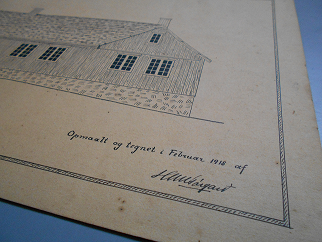 Opmaalt og tegnet i Februar 1918 af